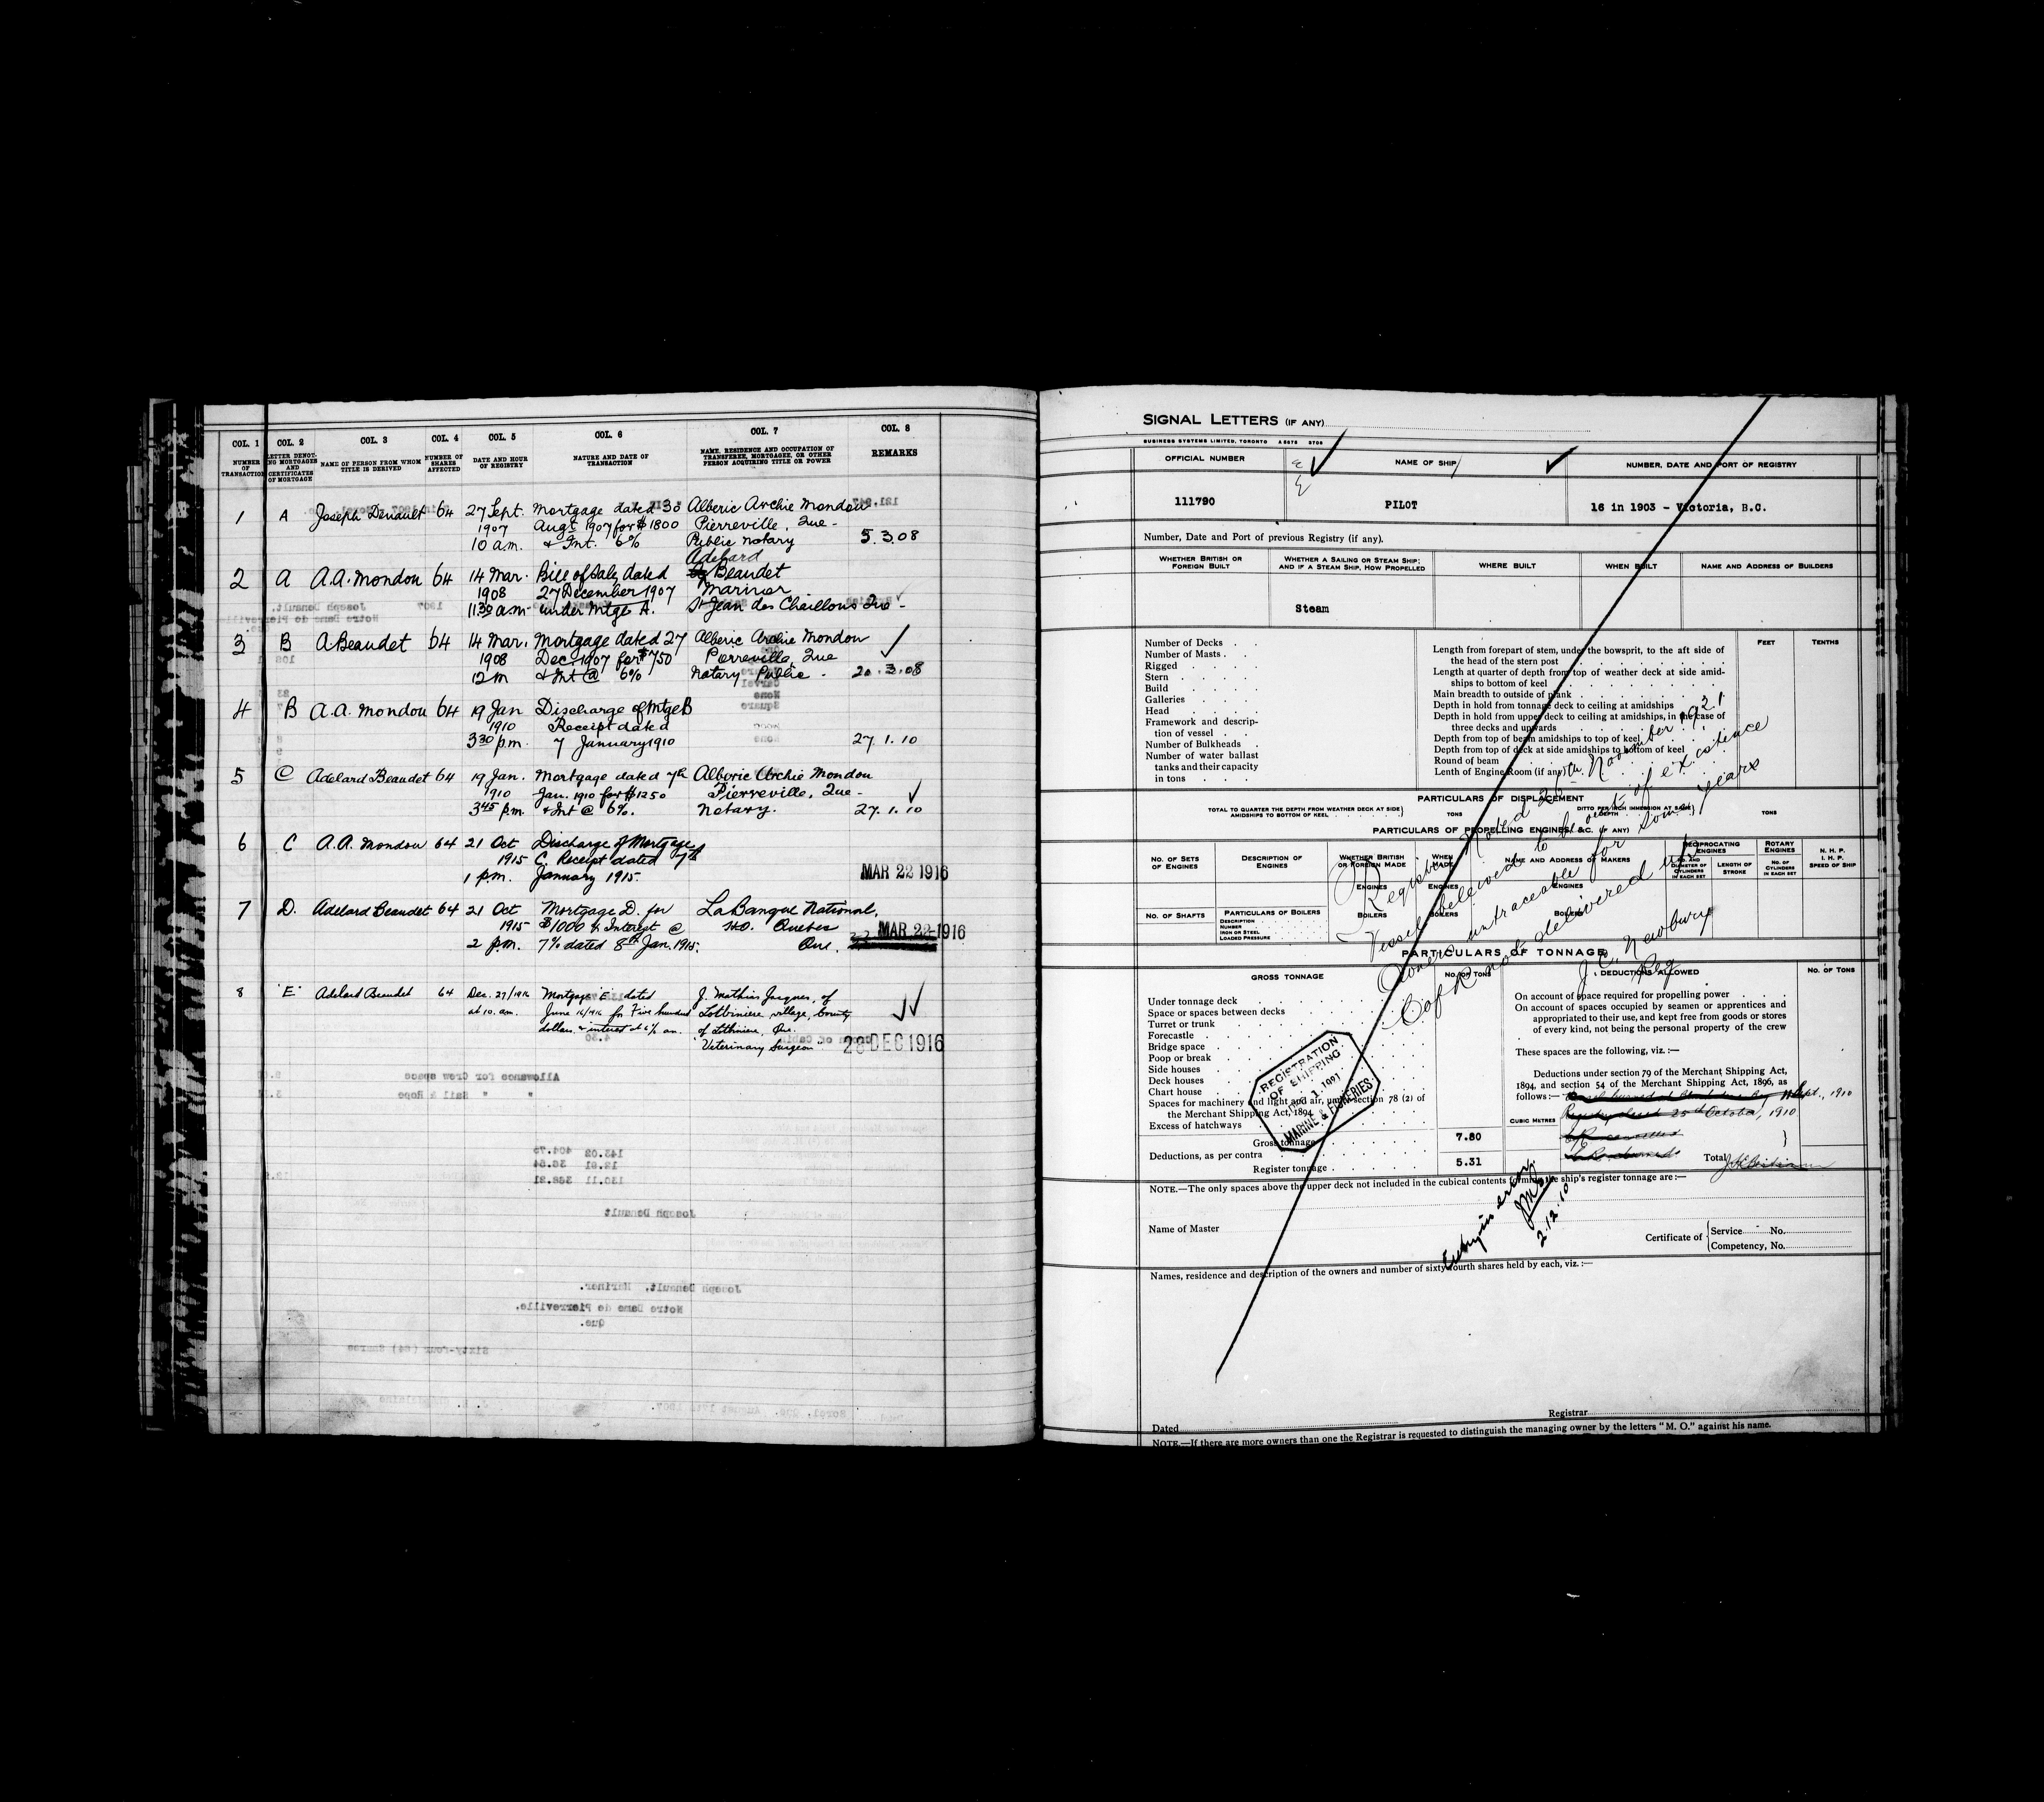 COL. 1 COL. 2 COL. 3 COL. 4 COL. 5 COL. 6 COL. 7 COL. 8
NUMBER OF TRANSACTION
LETTER DENOTING MORTGAGES AND CERTIFICATES OF MORTGAGE
NAME OF PERSON FROM WHOM TITLE IS DERIVED
NUMBER OF SHARES AFFECTED
DATE AND HOUR OF REGISTRY
NATURE AND DATE OF TRANSACTION
NAME, RESIDENCE AND OCCUPATION OF TRANSFEREE, MORTGAGEE, OR OTHER PERSON ACQUIRING TITLE OR POWER
REMARKS
1 A Joseph Denault 64 27 Sept. Mortgage dated 30 Alberic Archie Mondou
1907 Augt 1907 for $1800 Pierreville, Que-
10 a.m. & Int. 6% Public Notary 5.3.08
Adelard
2 A A.A. Mondou 64 14 Mar. Bill of Sale dated Beaudet
1908 27 December 1907 Mariner
11.30 a.m. under Mtge A. St Jean des Chaillons Que -
3 B A Beaudet 64 14 Mar. Mortgage dated 27 Alberic Archie Mondou
1908 Dec. 1907 for $750 Pierreville, Que
12 m & Int @ 6% Notary Public - 20.3.08
4 B A.A. Mondou 64 19 Jan Discharge of Mtge B
1910 Receipt dated
3 30 p.m. 7 January 1910 27.1.10
5 C Adelard Beaudet 64 19 Jan. Mortgage dated 7th Alberic Archie Mondou
1910 Jan. 1910 for $1250 Pierreville, Que-
3 45 p.m. & Int @ 6%. Notary. 27.1.10
6 C A.A. Mondou 64 21 Oct Discharge of Mortgage
1915 C. Receipt dated 7th
1 p.m. January 1915. MAR 22 1916
7 D. Adelard Beaudet 64 21 Oct Mortgage D. for La Banque National,
1915 $1000 & Interest @ H.O. Quebec
2 p.m. 7% dated 8th Jan. 1915. Que. MAR 22 1916
8 "E" Adelard Beaudet 64 Dec. 27/1916 Mortgage "E" dated J. Mathias Jacques, of
at 10. am. June 16/1916 for Five hundred Lotbiniere village, County
dollars & interest at 6% an. of Lotbiniere, Que.
"Veterinary Surgeon" 28 DEC 1916
SIGNAL LETTERS (IF ANY)
BUSINESS SYSTEMS LIMITED, TORONTO
OFFICIAL NUMBER NAME OF SHIP NUMBER, DATE AND PORT OF REGISTRY
111790 PILOT 16 in 1903 - Victoria, B.C.
Number, Date and Port of previous Registry (if any).
WHETHER BRITISH OR FOREIGN BUILT
WHETHER A SAILING OR STEAM SHIP; AND IF A STEAM SHIP, HOW PROPELLED
WHERE BUILT WHEN BUILT NAME AND ADDRESS OF BUILDERS
Steam
Number of Decks
Number of Masts
Rigged
Stern
Build
Galleries
Head
Framework and description of vessel
Number of Bulkheads
Number of water ballast tanks and their capacity in tons
FEET TENTHS
Length from forepart of stem, under the bowsprit, to the aft side of
the head of the stern post
Length at quarter of depth from top of weather deck at side amidships to bottom of keel
Main breadth to outside of plank
Depth in hold from tonnage deck to ceiling at amidships
Depth in hold from upper deck to ceiling at amidships, in the case of
three decks and upwards
Depth from top of beam amidships to top of keel
Depth from top of deck at side amidships to bottom of keel
Round of beam
Lenth of Engine Room (if any)
PARTICULARS OF DISPLACEMENT
TOTAL TO QUARTER THE DEPTH FROM WEATHER DECK AT SIDE AMIDSHIPS TO BOTTOM OF KEEL TONS
DITTO PER INCH IMMERSION AT SAME DEPTH TONS
PARTICULARS OF PROPELLING ENGINES, &C. (IF ANY)
NO. OF SETS OF ENGINES
DESCRIPTION OF ENGINES
WHETHER BRITISH OR FOREIGN MADE
WHEN MADE
NAME AND ADDRESS OF MAKERS
RECIPROCATING ENGINES
ROTARY ENGINES
NO. AND DIAMETER OF CYLINDERS IN EACH SET
LENGTH OF STROKE
NO. OF CYLINDERS IN EACH SET
N. H. P.
I. H. P.
SPEED OF SHIP
ENGINES ENGINES ENGINES
NO. OF SHAFTS
PARTICULARS OF BOILERS
DESCRIPTION
NUMBER
IRON OR STEEL
LOADED PRESSURE
BOILERS BOILERS BOILERS
Registry closed 26th November 1921.
Vessel believed to be out of existence
Owner untraceable for some years
C of R not delivered up
J. C. Newbury
Reg
PARTICULARS OF TONNAGE
GROSS TONNAGE NO. OF TONS DEDUCTIONS ALLOWED NO. OF TONS
Under tonnage deck
Space or spaces between decks
Turret or trunk
Forecastle
Bridge space
Poop or break
Side houses
Deck houses
Chart house
Spaces for machinery and light and air, under section 78 (2) of
the Merchant Shipping Act, 1894
Excess of hatchways
Gross tonnage 7.80
Deductions, as per contra
Register tonnage 5.31
On account of space required for propelling power
On account of spaces occupied by seamen or apprentices and
appropriated to their use, and kept free from goods or stores
of every kind, not being the personal property of the crew
These spaces are the following, viz. :—
Deductions under section 79 of the Merchant Shipping Act,
1894, and section 54 of the Merchant Shipping Act, 1896, as
follows:— Sept., 1910
Registry closed 25th October, 1910
CUBIC METRES
Total
REGISTRATION OF SHIPPING
MARINE & FISHERIES
NOTE.—The only spaces above the upper deck not included in the cubical contents forming the ship's register tonnage are :—
Entry in error
2.12.10
Name of Master
Certificate of Service No.
Competency, No.
Names, residence and description of the owners and number of sixty-fourth shares held by each, viz. :—
Dated Registrar
NOTE.—If there are more owners than one the Registrar is requested to distinguish the managing owner by the letters "M. O." against his name.